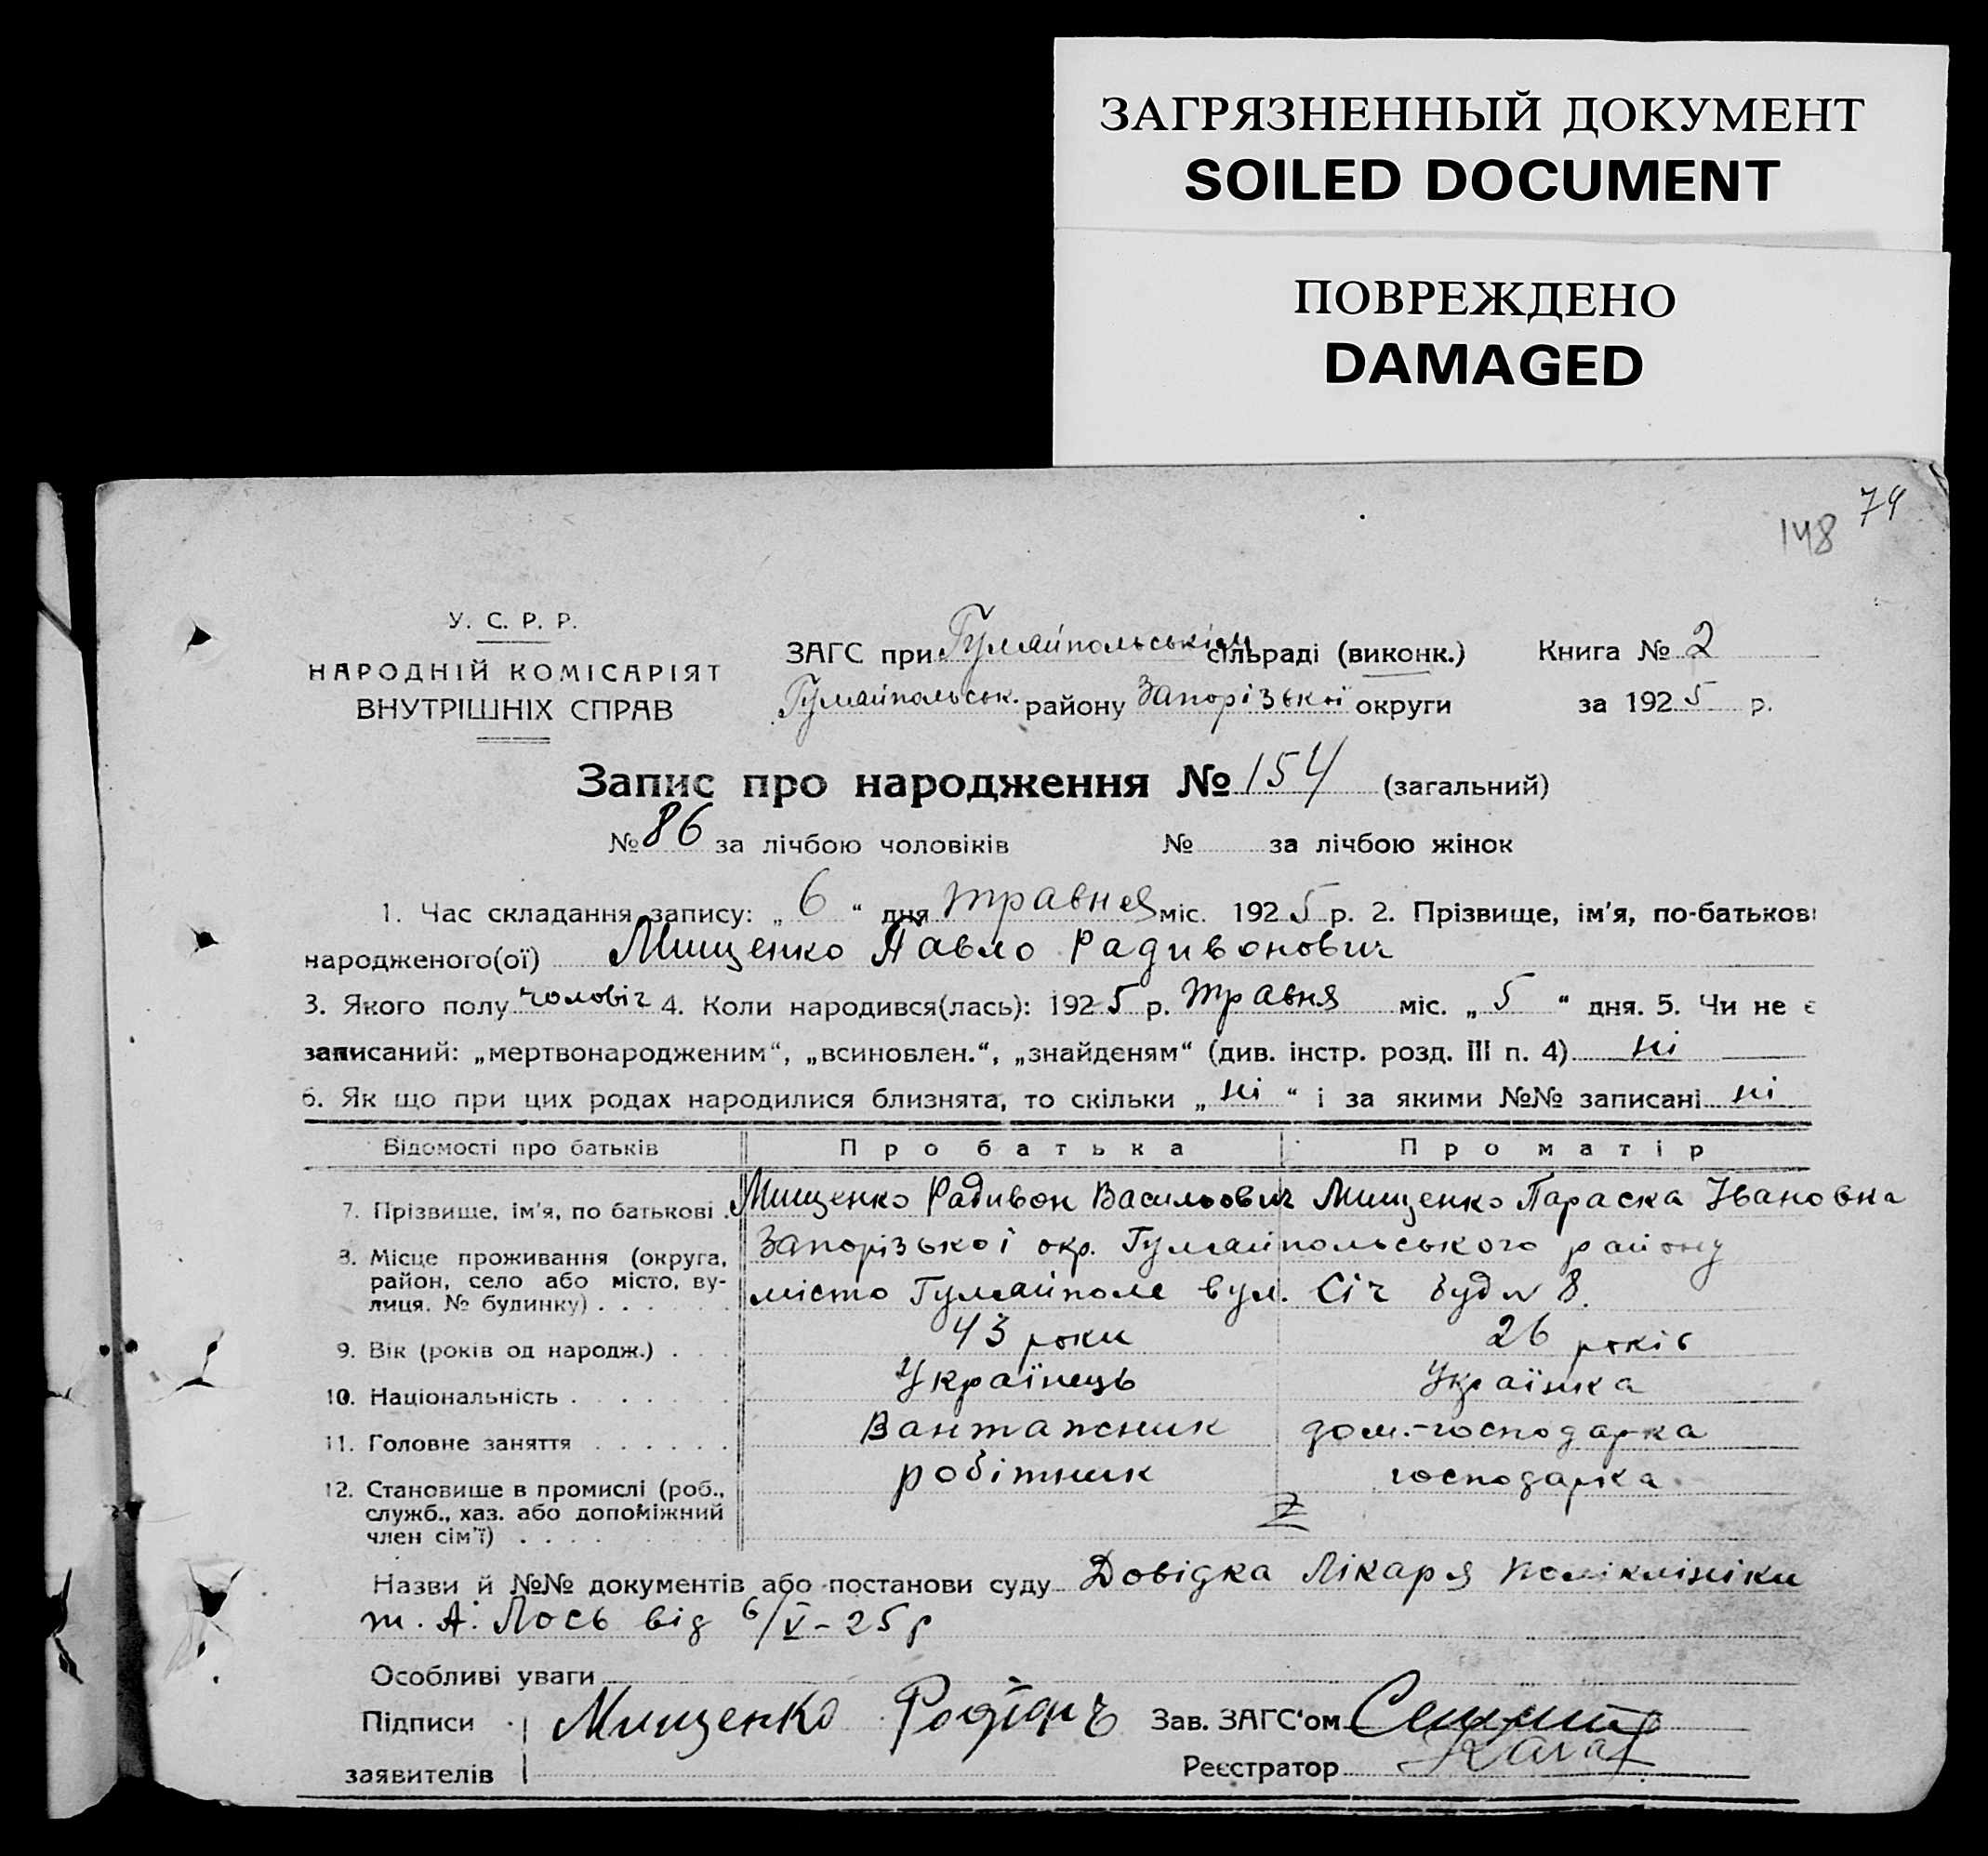 ЗАГРЯЗНЕННЫЙ ДОКУМЕНТ
SOILED DOCUMENT
ПОВРЕЖДЕНО
DAMAGED
148 74
У. С. Р. Р.
НАРОДНІЙ КОМІСАРІЯТ
ВНУТРІШНІХ СПРАВ
ЗАГС при Гуляйпольськім сільраді (виконк.) Книга № 2
Гуляйпольськ. району Запорізької округи за 1925 р.
Запис про народження № 154 (загальний)
№ 86 за лічбою чоловіків № за лічбою жінок
1. Час складання запису: „ 6 “ дня травня міс. 1925 р. 2. Прізвище, ім'я, по-батькові
народженого(ої) Мищенко Павло Радивонович
3. Якого полу чоловіч 4. Коли народився(лась): 1925 р. травня міс. „ 5 “ дня. 5. Чи не є
записаний: „мертвонародженим“, „всиновлен.“, „знайденям“ (див. інстр. розд. III п. 4) ні
6. Як що при цих родах народилися близнята, то скільки „ ні “ і за якими №№ записані ні
Відомості про батьків Про батька Про матір
7. Прізвище, ім'я, по батькові . Мищенко Радивон Васильович Мищенко Параска Івановна
8. Місце проживання (округа, район, село або місто, вулиця. № будинку) . . . . . . Запорізької окр. Гуляйпольського району
місто Гуляйполе вул. Січ буд № 8.
9. Вік (років од народж.) . . . 43 роки 26 років
10. Національність . . . . . . Українець Українка
11. Головне заняття . . . . . . Вантажник дом.-господарка
12. Становище в промислі (роб., служб., хаз. або допоміжний член сім'ї) . . . . робітник господарка
Назви й №№ документів або постанови суду Довідка Лікаря поліклініки
т. А. Лось від 6/V-25р
Особливі уваги
Підписи Мищенко Родіонъ Зав. ЗАГС'ом
заявителів Реєстратор